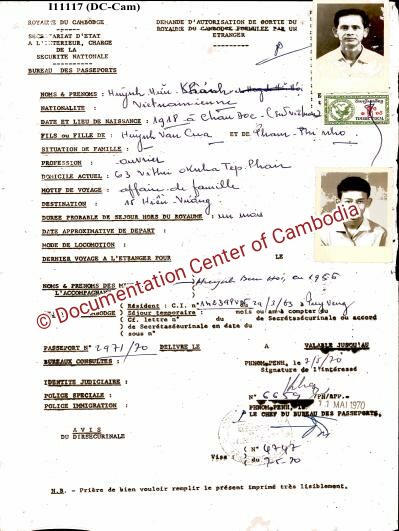 I11117 (DC-Cam)
ROYAUME DU CAMBODGE
SECRETARIAT D'ETAT
A L'INTERIEUR, CHARGE
DE LA
SECURITE NATIONALE
BUREAU DES PASSEPORTS
DEMANDE D'AUTORISATION DE SORTIE DU
ROYAUME DU CAMBODGE FORMULEE PAR UN
ETRANGER
NOMS & PRENOMS : Huỳnh Hiếu Khánh
NATIONALITE : Vietnamienne
DATE ET LIEU DE NAISSANCE : 1918 à Châu Doc
FILS ou FILLE DE : Huỳnh Van Cua ET DE Pham Thi Nho
SITUATION DE FAMILLE :
PROFESSION : ouvrier
DOMICILE ACTUEL : 63
MOTIF DE VOYAGE : affaire de famille
DESTINATION : 15 Hiền Vương
DUREE PROBABLE DE SEJOUR HORS DU ROYAUME : un mois
DATE APPROXIMATIVE DE DEPART :
MODE DE LOCOMOTION :
DERNIER VOYAGE A L'ETRANGER POUR LE
NOMS & PRENOMS DES
L'ACCOMPAGNANT
Résident : C.I. n° 29/3/63 à
Séjour temporaire : mois ou an à compter du
Cf. lettre n° du de Secrétasécurinale ou accord
de Secrétasécurinale en date du
sous n°
PASSEPORT N° 2971/70 DELIVRE LE A VALABLE JUSQU'AU
BUREAUX CONSULTES :
PHNOM-PENH, le 7/5/70
Signature de l'intéressé
IDENTITE JUDICIAIRE :
POLICE SPECIALE :
POLICE IMMIGRATION :
N° 6659 /PH/APP.-
PHNOM-PENH, le 11 MAI 1970
LE CHEF DU BUREAU DES PASSEPORTS,
AVIS
DU DIRSECURINALE
Visa : N° 4747
du 7-5-70
N.B. - Prière de bien vouloir remplir le présent imprimé très lisiblement.
© Documentation Center of Cambodia